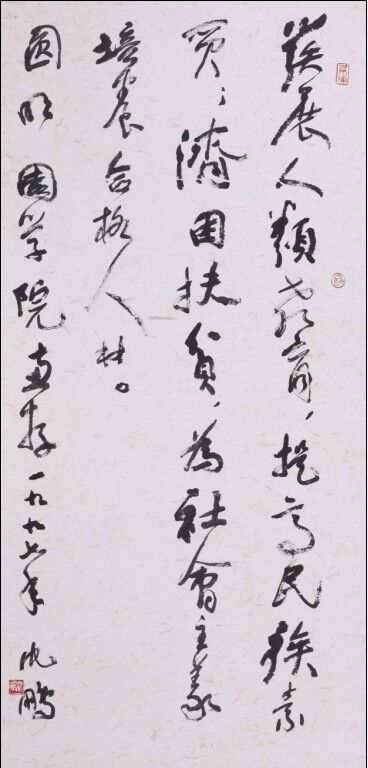 發展人類教育，提高民族素
质；濟困扶貧，為社會主義
培養合格人材。
圓明園学院惠存一九九七年沈鵬